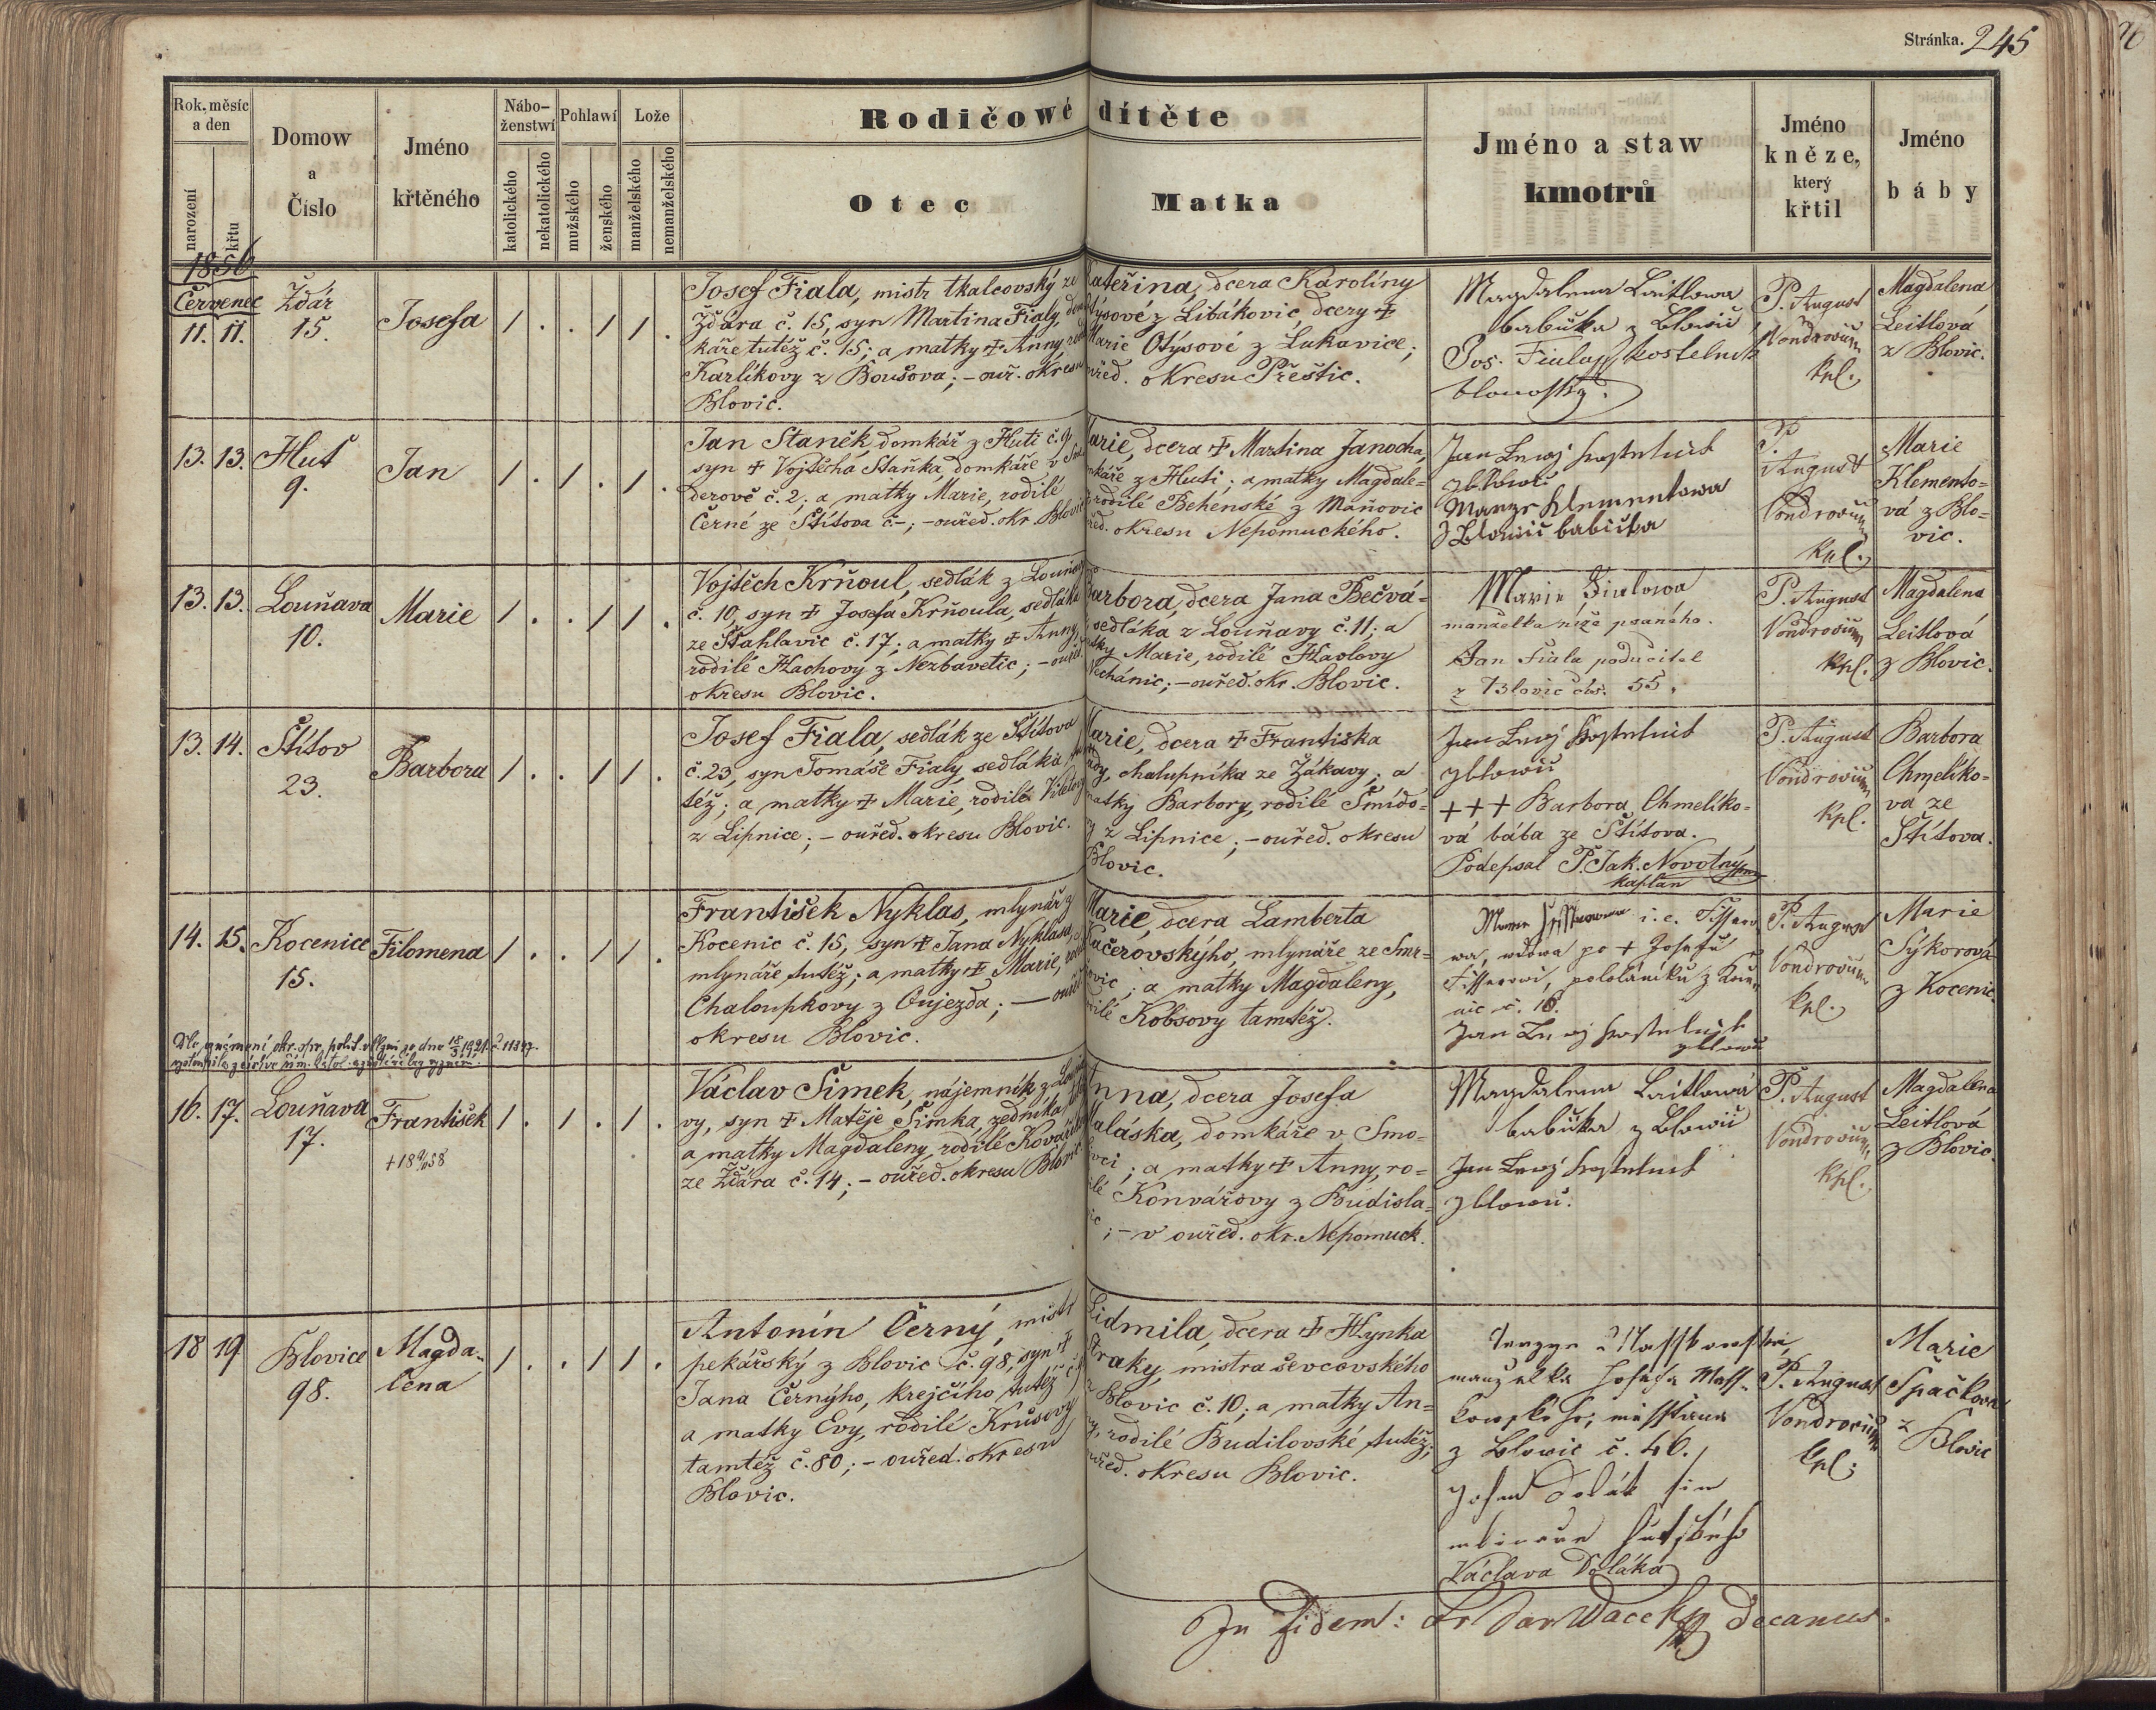 Stránka. 245
Rok, měsíc a den
narození
křtu
Domow a Číslo
Jméno křtěného
Náboženstwí
katolického
nekatolického
Pohlawí
mužského
ženského
Lože
manželského
nemanželského
Rodičowé dítěte
Otec
Matka
Jméno a staw kmotrů
Jméno kněze, který křtil
Jméno báby
1856
Červenec
11. 11.
Žďár
15.
Josefa
1 . . 1 1 .
Josef Fiala, mistr tkalcovský ze
Žďára č. 15, syn Martina Fialy, dom
káře tutéž č. 15; a matky + Anny, roz
Karlíkovy z Boušova; – ouř. okresu
Blovic.
Kateřina, dcera Karolíny
Otýsové z Libákovic, dcery +
Marie Otýsové z Lukavice;
ouřed. okresu Přeštic.
Magdalena Laitlowa
babička z Blowic
Jos. Fiala, kostelnik
blowoskz.
P. August
Vondrovic
kpl.
Magdalena
Leitlová
z Blovic.
13. 13.
Huť
9.
Jan
1 . 1 . 1 .
Jan Staněk, domkář z Huti č. 9,
syn + Vojtěcha Staňka, domkáře v
derově č. 2; a matky Marie, rodilé
Černé ze Štítova č–; – ouřed. okr. Blovic
Marie, dcera + Martina Janocha,
mkáře z Huti; a matky Magdale=
rodilé Behenské z Maňovic
řed. okresu Nepomuckého.
Jan kostelnik
z blowic
Klementowa
z Blowic babicka
P.
August
Vondrovic
kpl.
Marie
Klemento=
vá z Blo=
vic.
13. 13.
Louňava
10.
Marie
1 . . 1 1 .
Vojtěch Krňoul, sedlák z Louňavy
č. 10, syn + Josefa Krňoula, sedláka
ze Štáhlavic č. 17; a matky + Anny,
rodilé Hachovy z Nezbavetic; – ouřed.
okresu Blovic.
Barbora, dcera Jana Bečvá=
sedláka z Louňavy č. 11; a
matky Marie, rodilé Havlovy
Nechánic; – ouřed. okr. Blovic.
Marie Fialowa
manželka níže psaného.
Jan Fiala podučitel
z Blovic čís. 55.
P. August
Vondrovic
kpl.
Magdalena
Leitlová
z Blovic.
13. 14.
Štítov
23.
Barbora
1 . . 1 1 .
Josef Fiala, sedlák ze Štítova
č. 23, syn Tomáše Fialy, sedláka
též; a matky + Marie, rodilé
z Lipnice; – ouřed. okresu Blovic.
Marie, dcera + Františka
chalupníka ze Žákavy; a
matky Barbory, rodilé Šmído=
vy z Lipnice; – ouřed. okresu
Blovic.
Jan kostelnik
z blowic
+++ Barbora Chmelíko=
vá bába ze Štítova.
Podepsal P. Jak. Novotný
kaplan
P. August
Vondrovic
kpl.
Barbora
Chmelíko=
va ze
Štítova.
14. 15.
Kocenice
15.
Filomena
1 . . 1 1 .
František Nyklas, mlynář z
Kocenic č. 15, syn + Jana Nyklasa,
mlynáře tutéž; a matky + Marie,
Chaloupkovy z Oujezda; – ouřed.
okresu Blovic.
Marie, dcera Lamberta
Kačerovskýho, mlynáře ze Smr=
ovic; a matky Magdaleny,
rodilé Kobsovy tamtéž.
i. e. Fissero
wa, wdowa po + Josefu
Fisserowi, pololáníku z Koce
nic č. 16.
Jan kostelnik
z blowic
P. August
Vondrovic
kpl.
Marie
Sýkorová
z Kocenic.
Dle oznámení okr. spr. polit. v Plzni ze dne 18/3 1921 č. 11347.
vystoupila z církve řím. katol.
16. 17.
Louňava
17.
František
+ 18 58
1 . 1 . 1 .
Václav Šimek, nájemník z Louňa
vy, syn + Matěje Šimka, zedníka
a matky Magdaleny, rodilé
ze Žďára č. 14; – ouřed. okresu Blovic
Anna, dcera Josefa
Maláska, domkáře v Smo=
; a matky + Anny, ro=
dilé Konvářovy z Budisla=
vic; – v ouřed. okr. Nepomuck.
Magdalena Laitlowa
babička z Blowic
Jan kostelnik
z blowic.
P. August
Vondrovic
kpl.
Magdalena
Leitlová
z Blovic.
18 19
Blovice
98.
Magda=
lena
1 . . 1 1 .
Antonín Černý, mistr
pekářský z Blovic č. 98, syn +
Jana Černýho, krejčího tutéž č.
a matky Evy, rodilé Krůsovy
tamtéž č. 80; – ouřed. okresu
Blovic.
Lidmila, dcera + Hynka
Straky, mistra ševcovského
z Blovic č. 10; a matky An=
ny, rodilé Budilovské tutéž;
ouřed. okresu Blovic.
manzelka Josefa
z Blowic č. 46.
Josef Dolák sin
Václava Doláka
P. August
Vondrovic
kpl.
Marie
Špačková
z
Blovic
In Fidem: Fr. Jar Wacek Decanus.